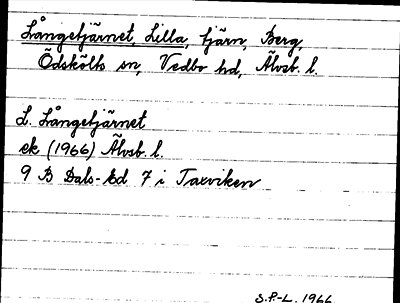 Långetjärnet, Lilla, tjärn, Berg,
Ödskölts sn, Vedbo hd, Älvsb. l.
L. Långetjärnet
ek (1966) Älvsb. l.
9 B Dals-Ed 7 i Taxviken
S.P-L. 1966